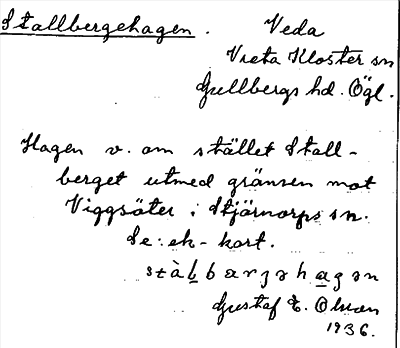 Stallbergehagen. Veda
Vreta Kloster sn
Gullbergs hd. Ögl.
Hagen v. om stället Stall-
berget utmed gränsen mot
Viggsäter i Stjärnorps sn.
Se: ek-kart.
Gustaf E. Olsson
1936.